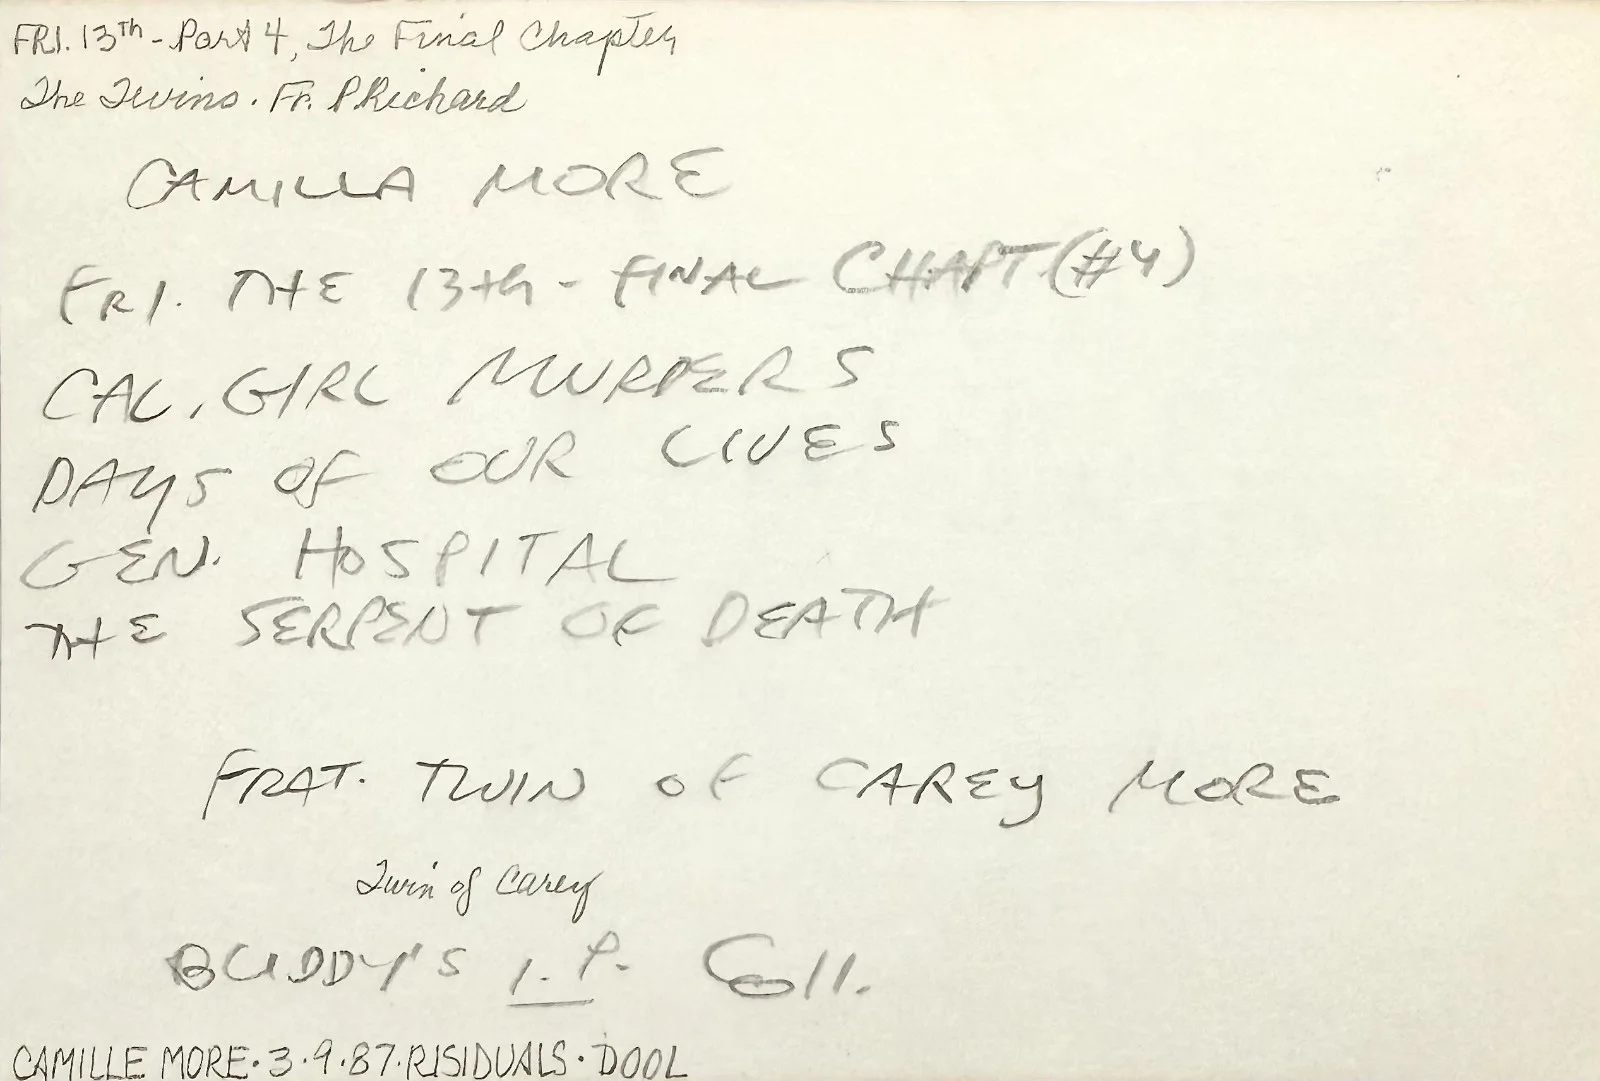 FRI. 13th - Part 4, The Final Chapter
The Twins. Fr. P. Richard
CAMILLA MORE
FRI. THE 13th - FINAL CHAPT (#4)
CAL. GIRL MURDERS
DAYS OF OUR LIVES
GEN. HOSPITAL
THE SERPENT OF DEATH
FRAT. TWIN OF CAREY MORE
Twin of Carey
BUDDY'S I.P. Coll.
CAMILLE MORE · 3 · 9 · 87 · RISIDUALS · DOOL